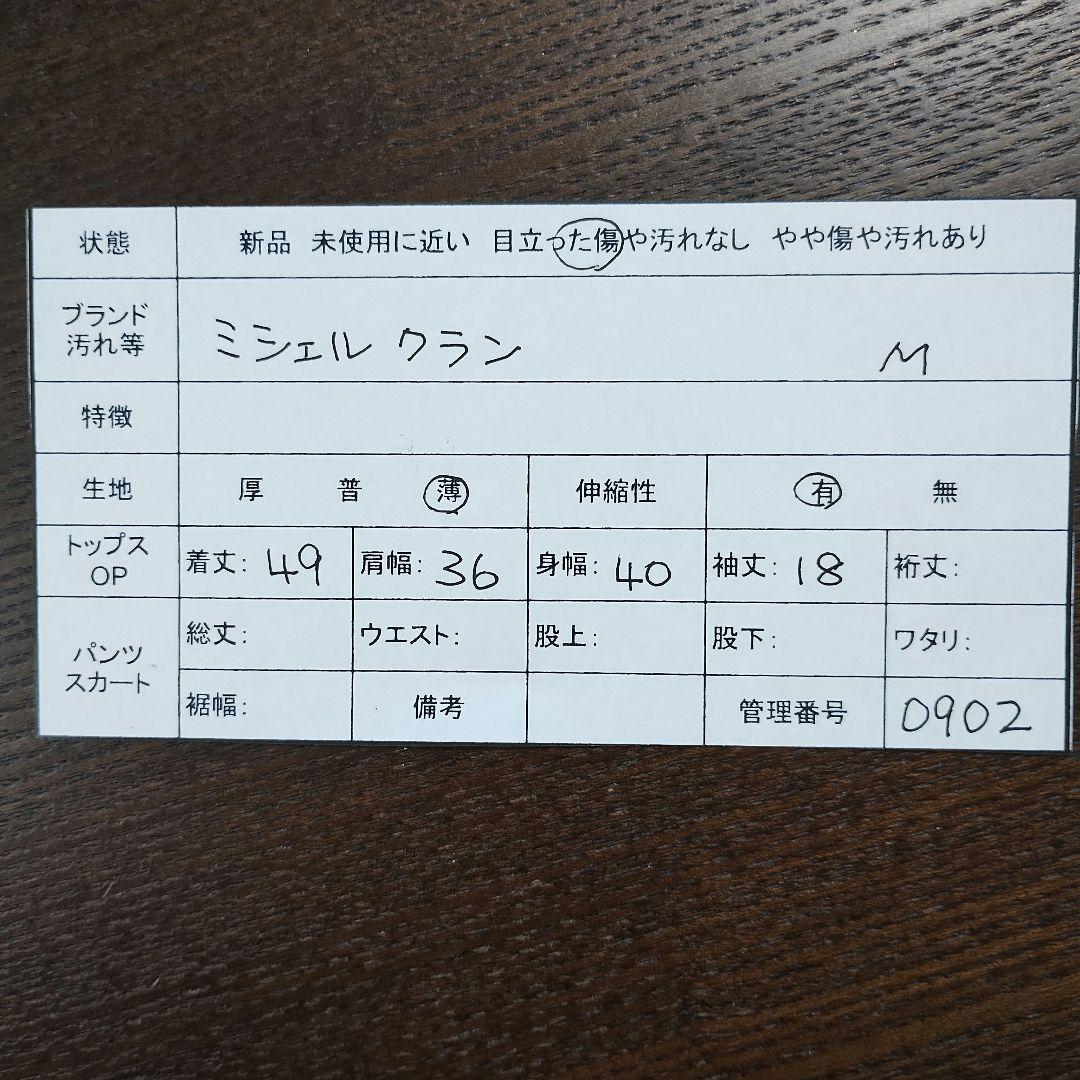 状態 新品 未使用に近い 目立った傷や汚れなし やや傷や汚れあり
ブランド
汚れ等
ミシェル クラン M
特徴
生地 厚 普 薄 伸縮性 有 無
トップス
OP
着丈: 49 肩幅: 36 身幅: 40 袖丈: 18 裄丈:
パンツ
スカート
総丈: ウエスト: 股上: 股下: ワタリ:
裾幅: 備考 管理番号 0902